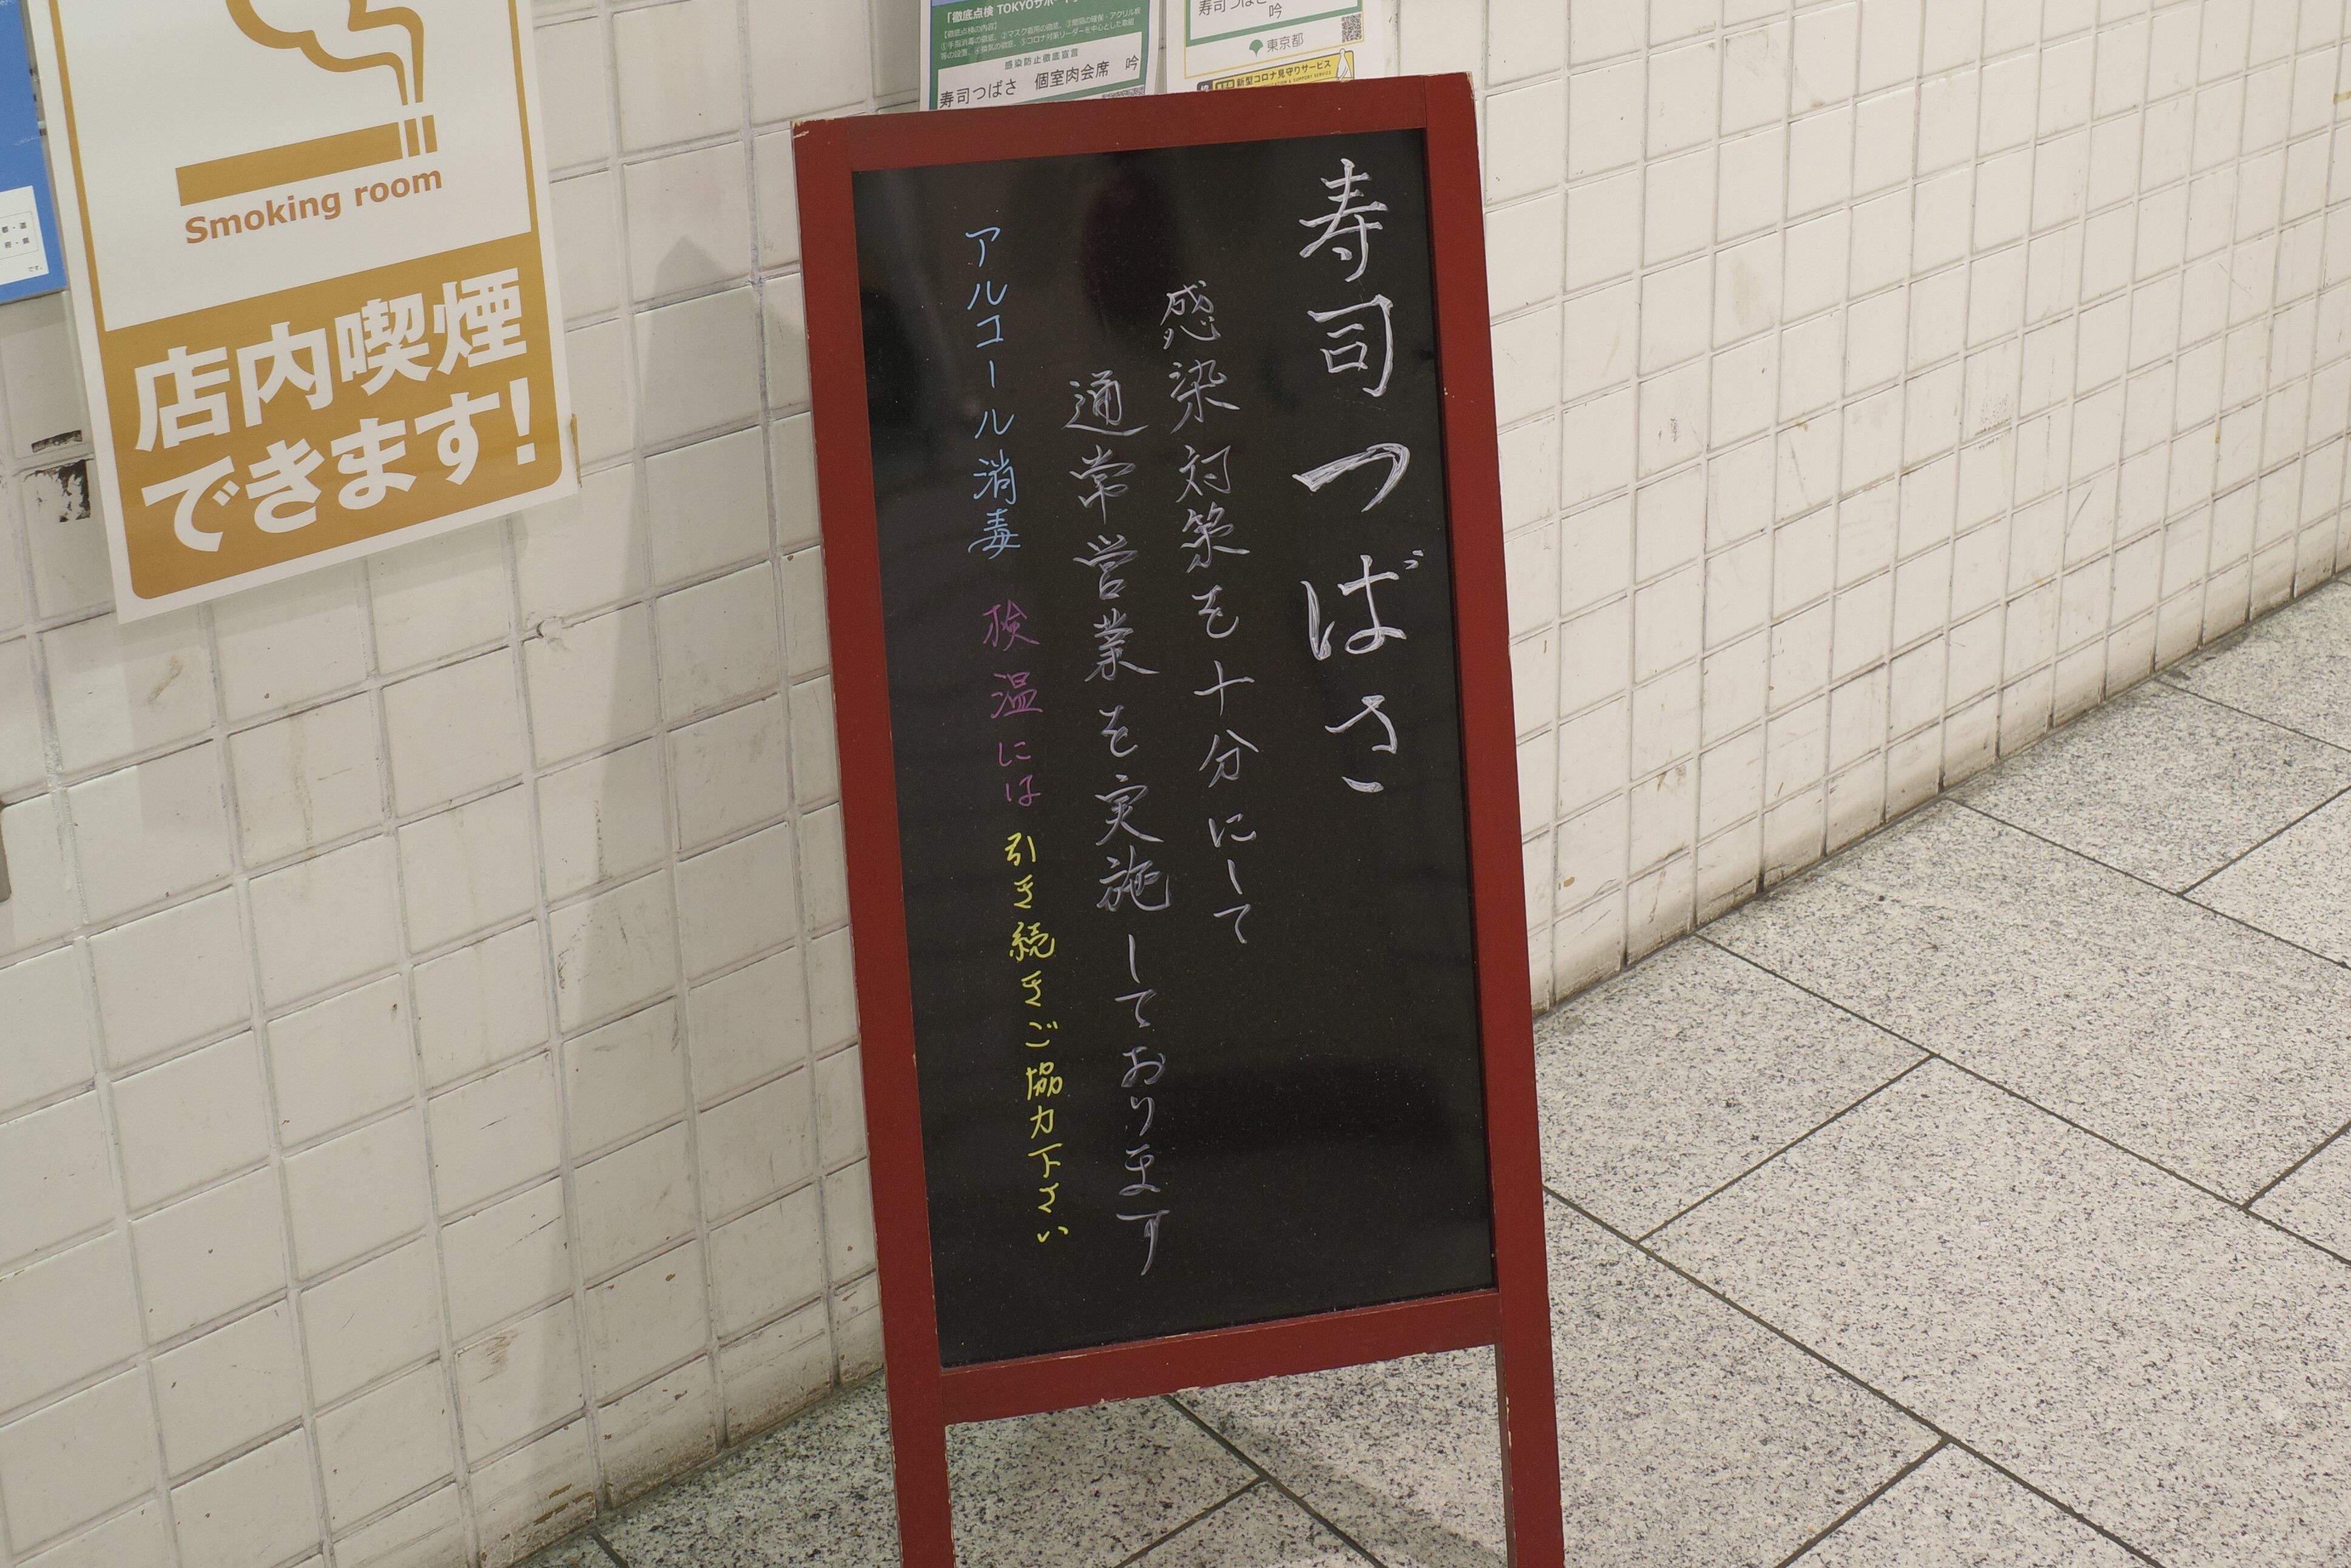 Smoking room
店内喫煙
できます!
「徹底点検 TOKYOサポート
【徹底点検の内容】
感染防止徹底宣言
寿司つばさ 個室肉会席 吟
寿司つばさ
吟
東京都
新型コロナ見守りサービス
寿司つばさ
感染対策を十分にして
通常営業を実施しております
アルコール消毒 検温には引き続きご協力下さい
です。